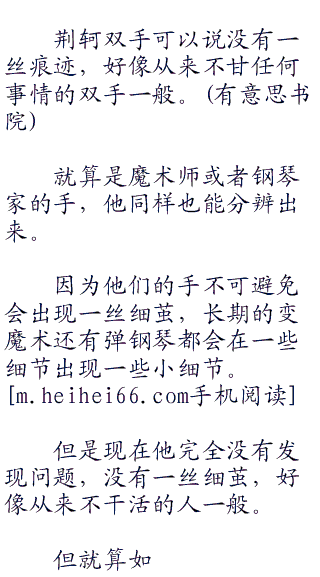 荆轲双手可以说没有一
丝痕迹，好像从来不甘任何
事情的双手一般。(有意思书
院)
就算是魔术师或者钢琴
家的手，他同样也能分辨出
来。
因为他们的手不可避免
会出现一丝细茧，长期的变
魔术还有弹钢琴都会在一些
细节出现一些小细节。
[m.heihei66.com手机阅读]
但是现在他完全没有发
现问题，没有一丝细茧，好
像从来不干活的人一般。
但就算如